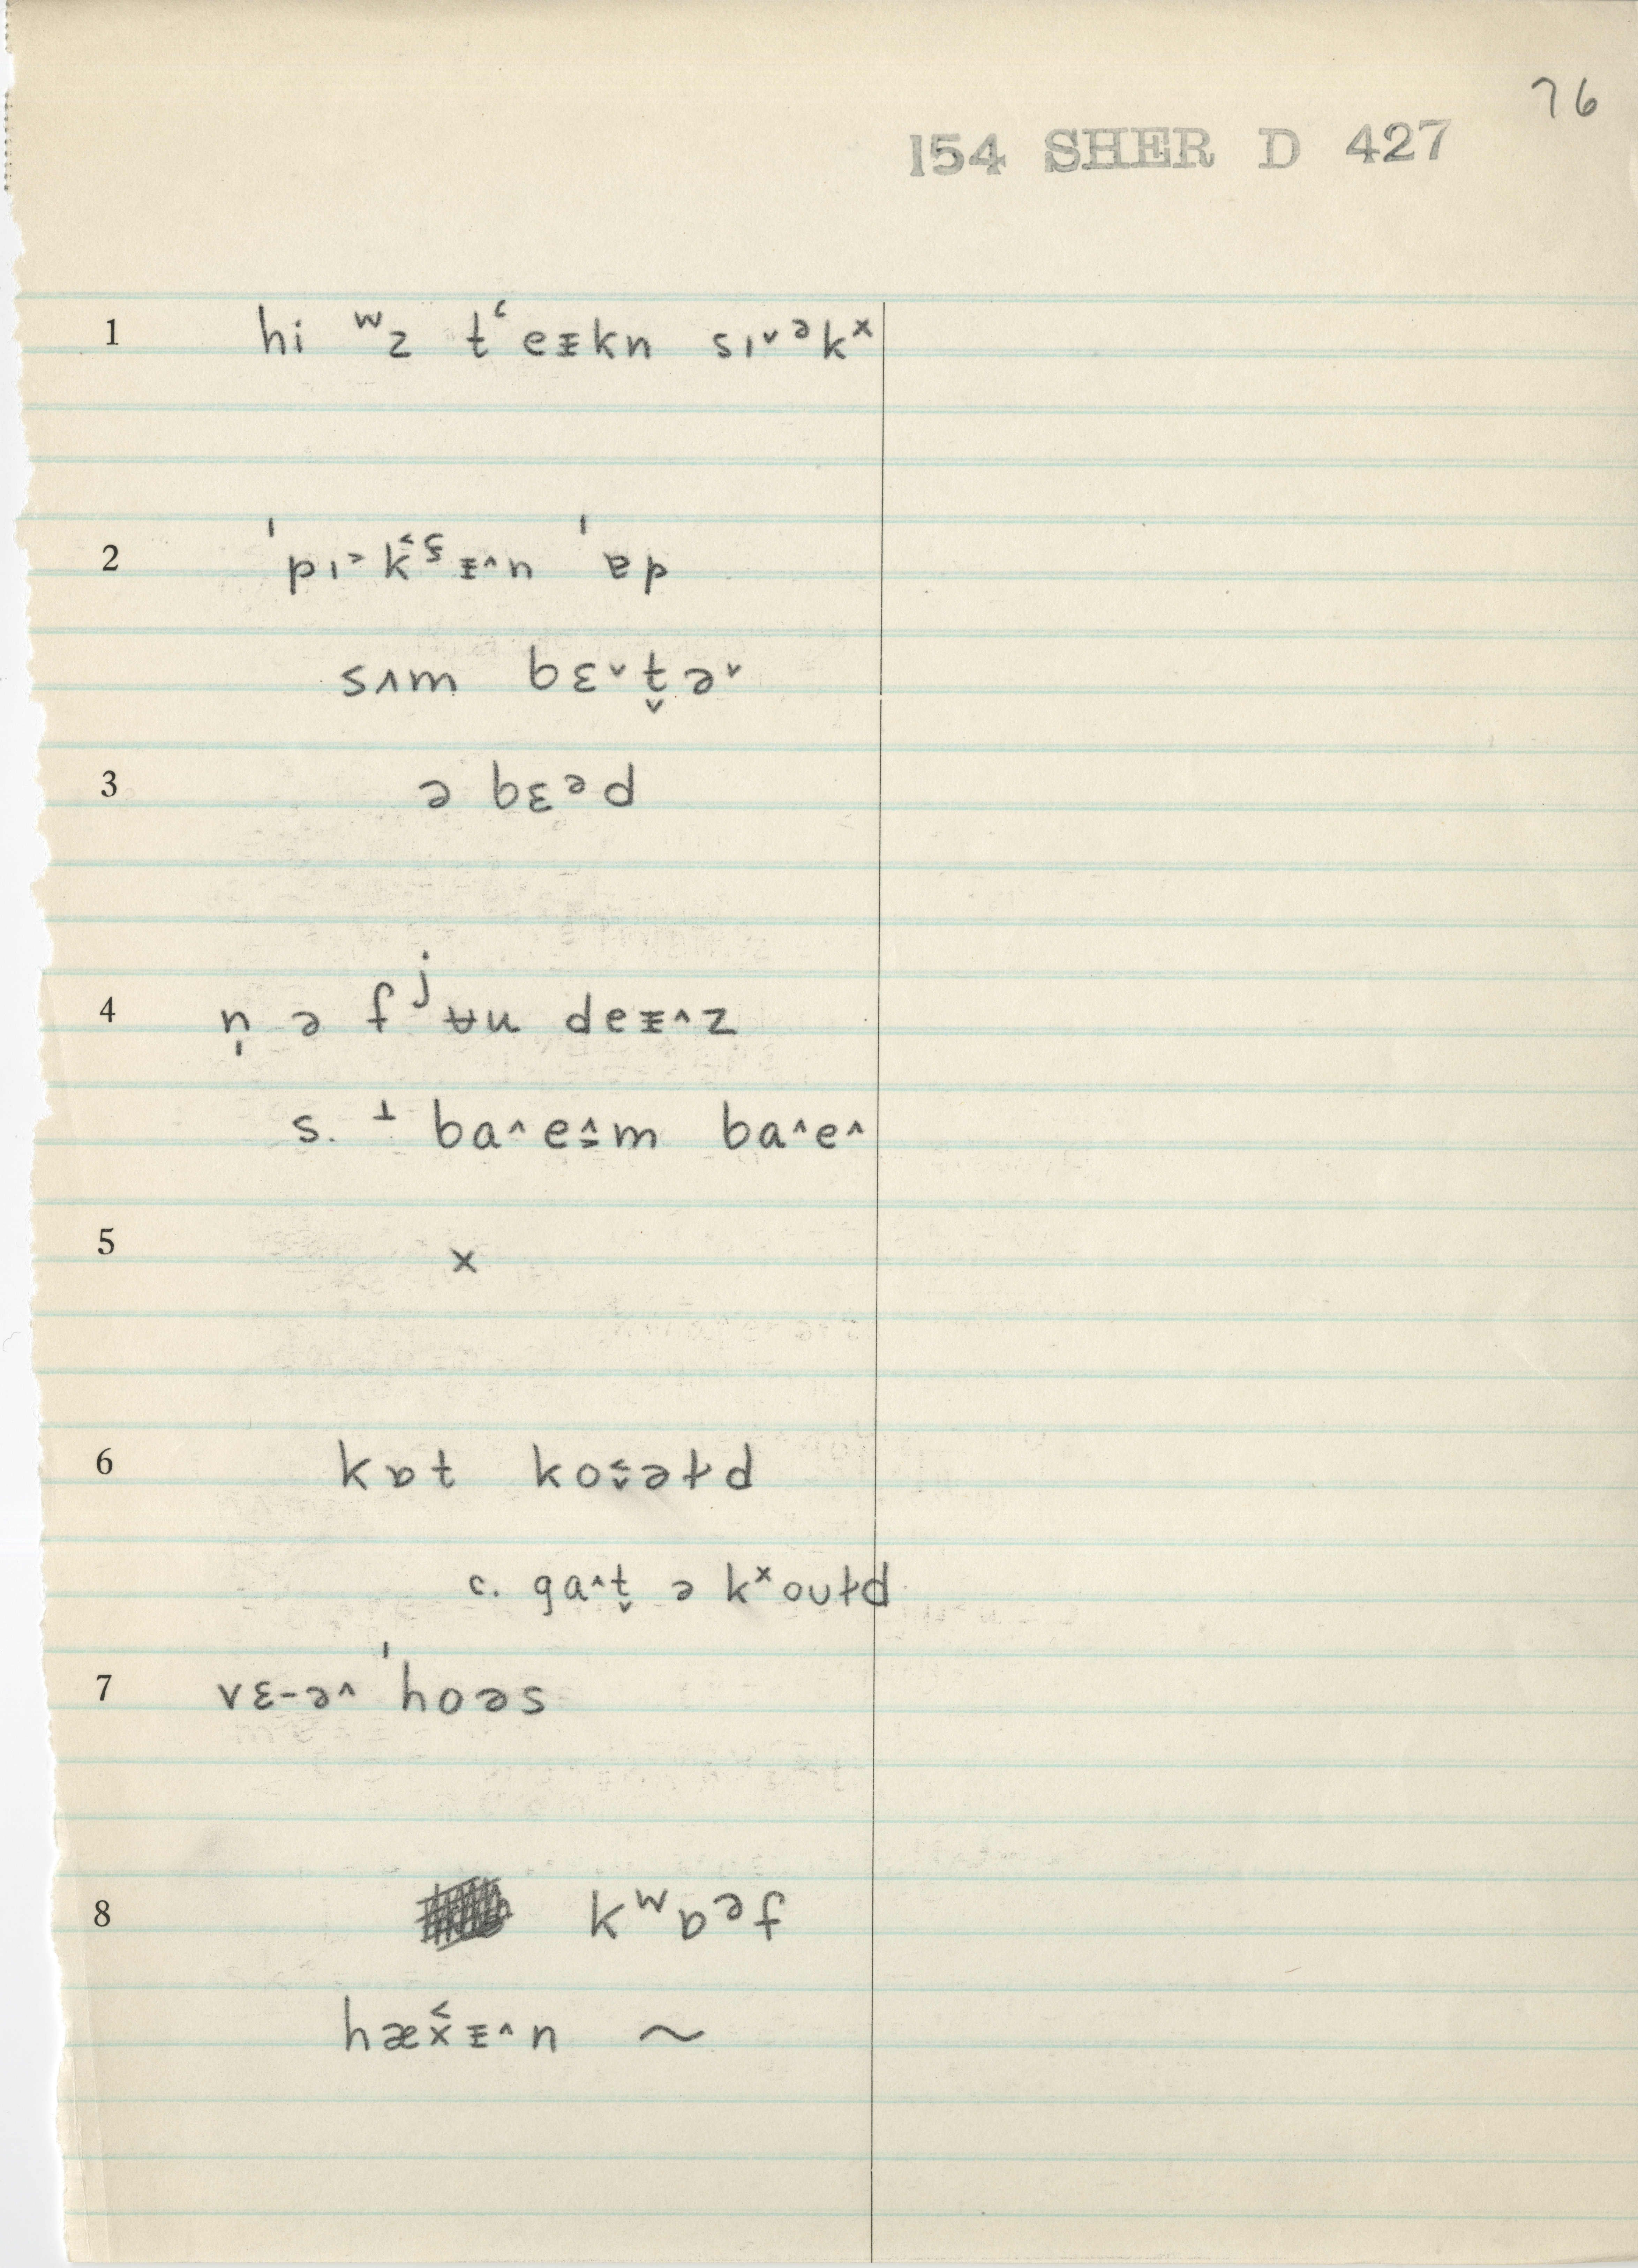 76
154 SHER D 427
1 hi ʷz tʻeᵻkn sɪ˅ᵊkˣ
2 ˈpɪ˃k̬̂ᶊᵻ˄n ˈɐp
sʌm bɛ˅t̬ə˅
3 ə bɛᵊd
4 n̩ ə fʲʉn deᵻ˄z
s. ⊥ ba˄e˄m ba˄e˄
5 x
6 kɒt koə̯ɫd
c. ga˄t̬ ə kˣoʊɫd
7 vɛ-ə˄ ˈhoəs
8 kʷɒᵊf
hæx̌ᵻ˄n ~